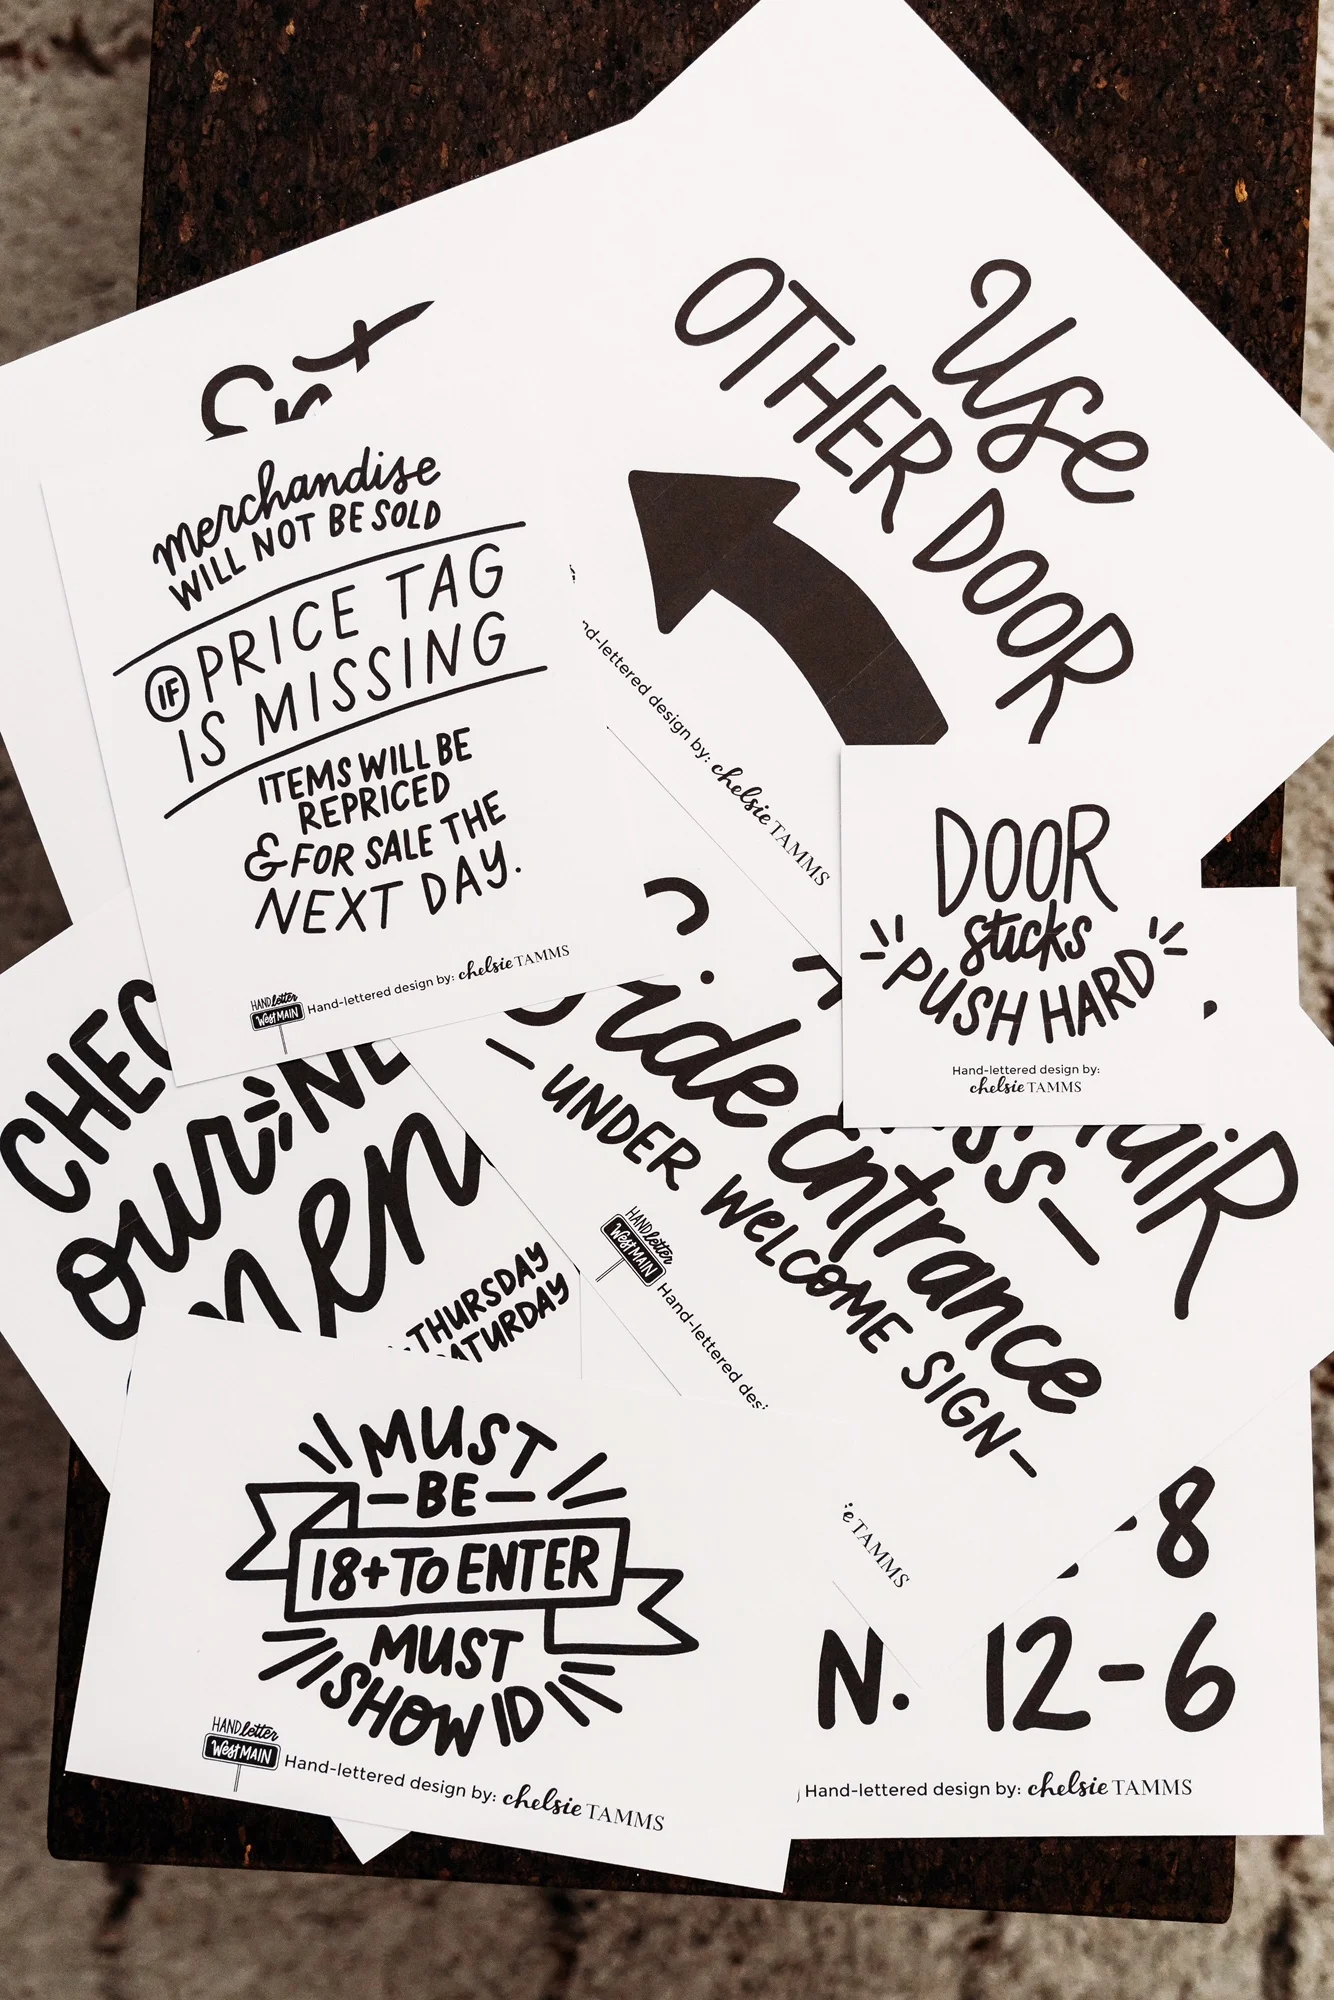 Use
OTHER DOOR
Hand-lettered design by: chelsie TAMMS
merchandise
WILL NOT BE SOLD
IF PRICE TAG
IS MISSING
ITEMS WILL BE
REPRICED
& FOR SALE THE
NEXT DAY.
HAND letter
West MAIN
Hand-lettered design by: chelsie TAMMS
DOOR
sticks
PUSH HARD
Hand-lettered design by:
chelsie TAMMS
our
THURSDAY
Side Entrance
– UNDER WELCOME SIGN –
HAND letter
West MAIN
Hand-lettered
TAMMS
MUST
– BE –
18+ TO ENTER
MUST
SHOW ID
HAND letter
West MAIN
Hand-lettered design by: chelsie TAMMS
8
N. 12-6
Hand-lettered design by: chelsie TAMMS